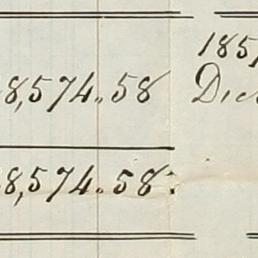 8,574.58
8,574.58
185